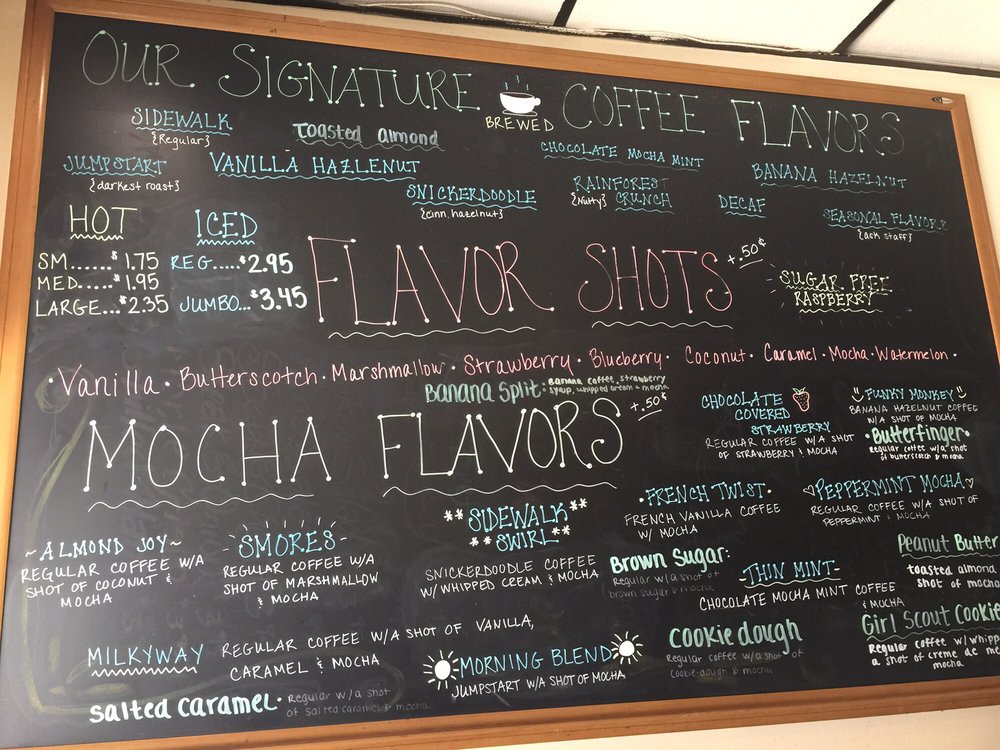 OUR SIGNATURE BREWED COFFEE FLAVORS
SIDEWALK
{Regular}
Toasted almond
CHOCOLATE MOCHA MINT
JUMPSTART
{darkest roast}
VANILLA HAZLENUT
BANANA HAZELNUT
SNICKERDOODLE
{cinn. hazelnut}
RAINFOREST
{Nutty} CRUNCH
DECAF
SEASONAL FLAVORS
{ask staff}
HOT
SM......$1.75
MED.....$1.95
LARGE...$2.35
ICED
REG.....$2.95
JUMBO...$3.45
FLAVOR SHOTS
+.50¢
SUGAR FREE
RASPBERRY
·Vanilla· Butterscotch· Marshmallow· Strawberry· Blueberry· Coconut· Caramel· Mocha· Watermelon·
Banana Split: Banana coffee, strawberry
syrup, whipped cream + mocha
MOCHA FLAVORS
+.50¢
CHOCOLATE
COVERED
STRAWBERRY
REGULAR COFFEE W/A SHOT
OF STRAWBERRY & MOCHA
FUNKY MONKEY
BANANA HAZELNUT COFFEE
W/A SHOT OF MOCHA
·Butterfinger·
Regular coffee w/a shot
of butterscotch & mocha
~ALMOND JOY~
REGULAR COFFEE W/A
SHOT OF COCONUT &
MOCHA
SMORES
REGULAR COFFEE W/A
SHOT OF MARSHMALLOW
& MOCHA
**SIDEWALK**
**SWIRL**
SNICKERDOODLE COFFEE
W/WHIPPED CREAM & MOCHA
·FRENCH TWIST·
FRENCH VANILLA COFFEE
W/ MOCHA
♡PEPPERMINT MOCHA♡
REGULAR COFFEE W/A SHOT OF
PEPPERMINT & MOCHA
Brown Sugar:
Regular w/a shot of
brown sugar & mocha
-THIN MINT-
CHOCOLATE MOCHA MINT COFFEE
& MOCHA
Peanut Butter
toasted almond
shot of mocha
MILKYWAY
REGULAR COFFEE W/A SHOT OF VANILLA,
CARAMEL & MOCHA
MORNING BLEND
JUMPSTART W/A SHOT OF MOCHA
Cookie dough
Regular coffee w/a shot of
cookie-dough & mocha
Girl Scout Cookie
Regular coffee w/ whipp
a shot of creme de me
mocha
salted caramel· Regular w/a shot
of salted caramel & mocha